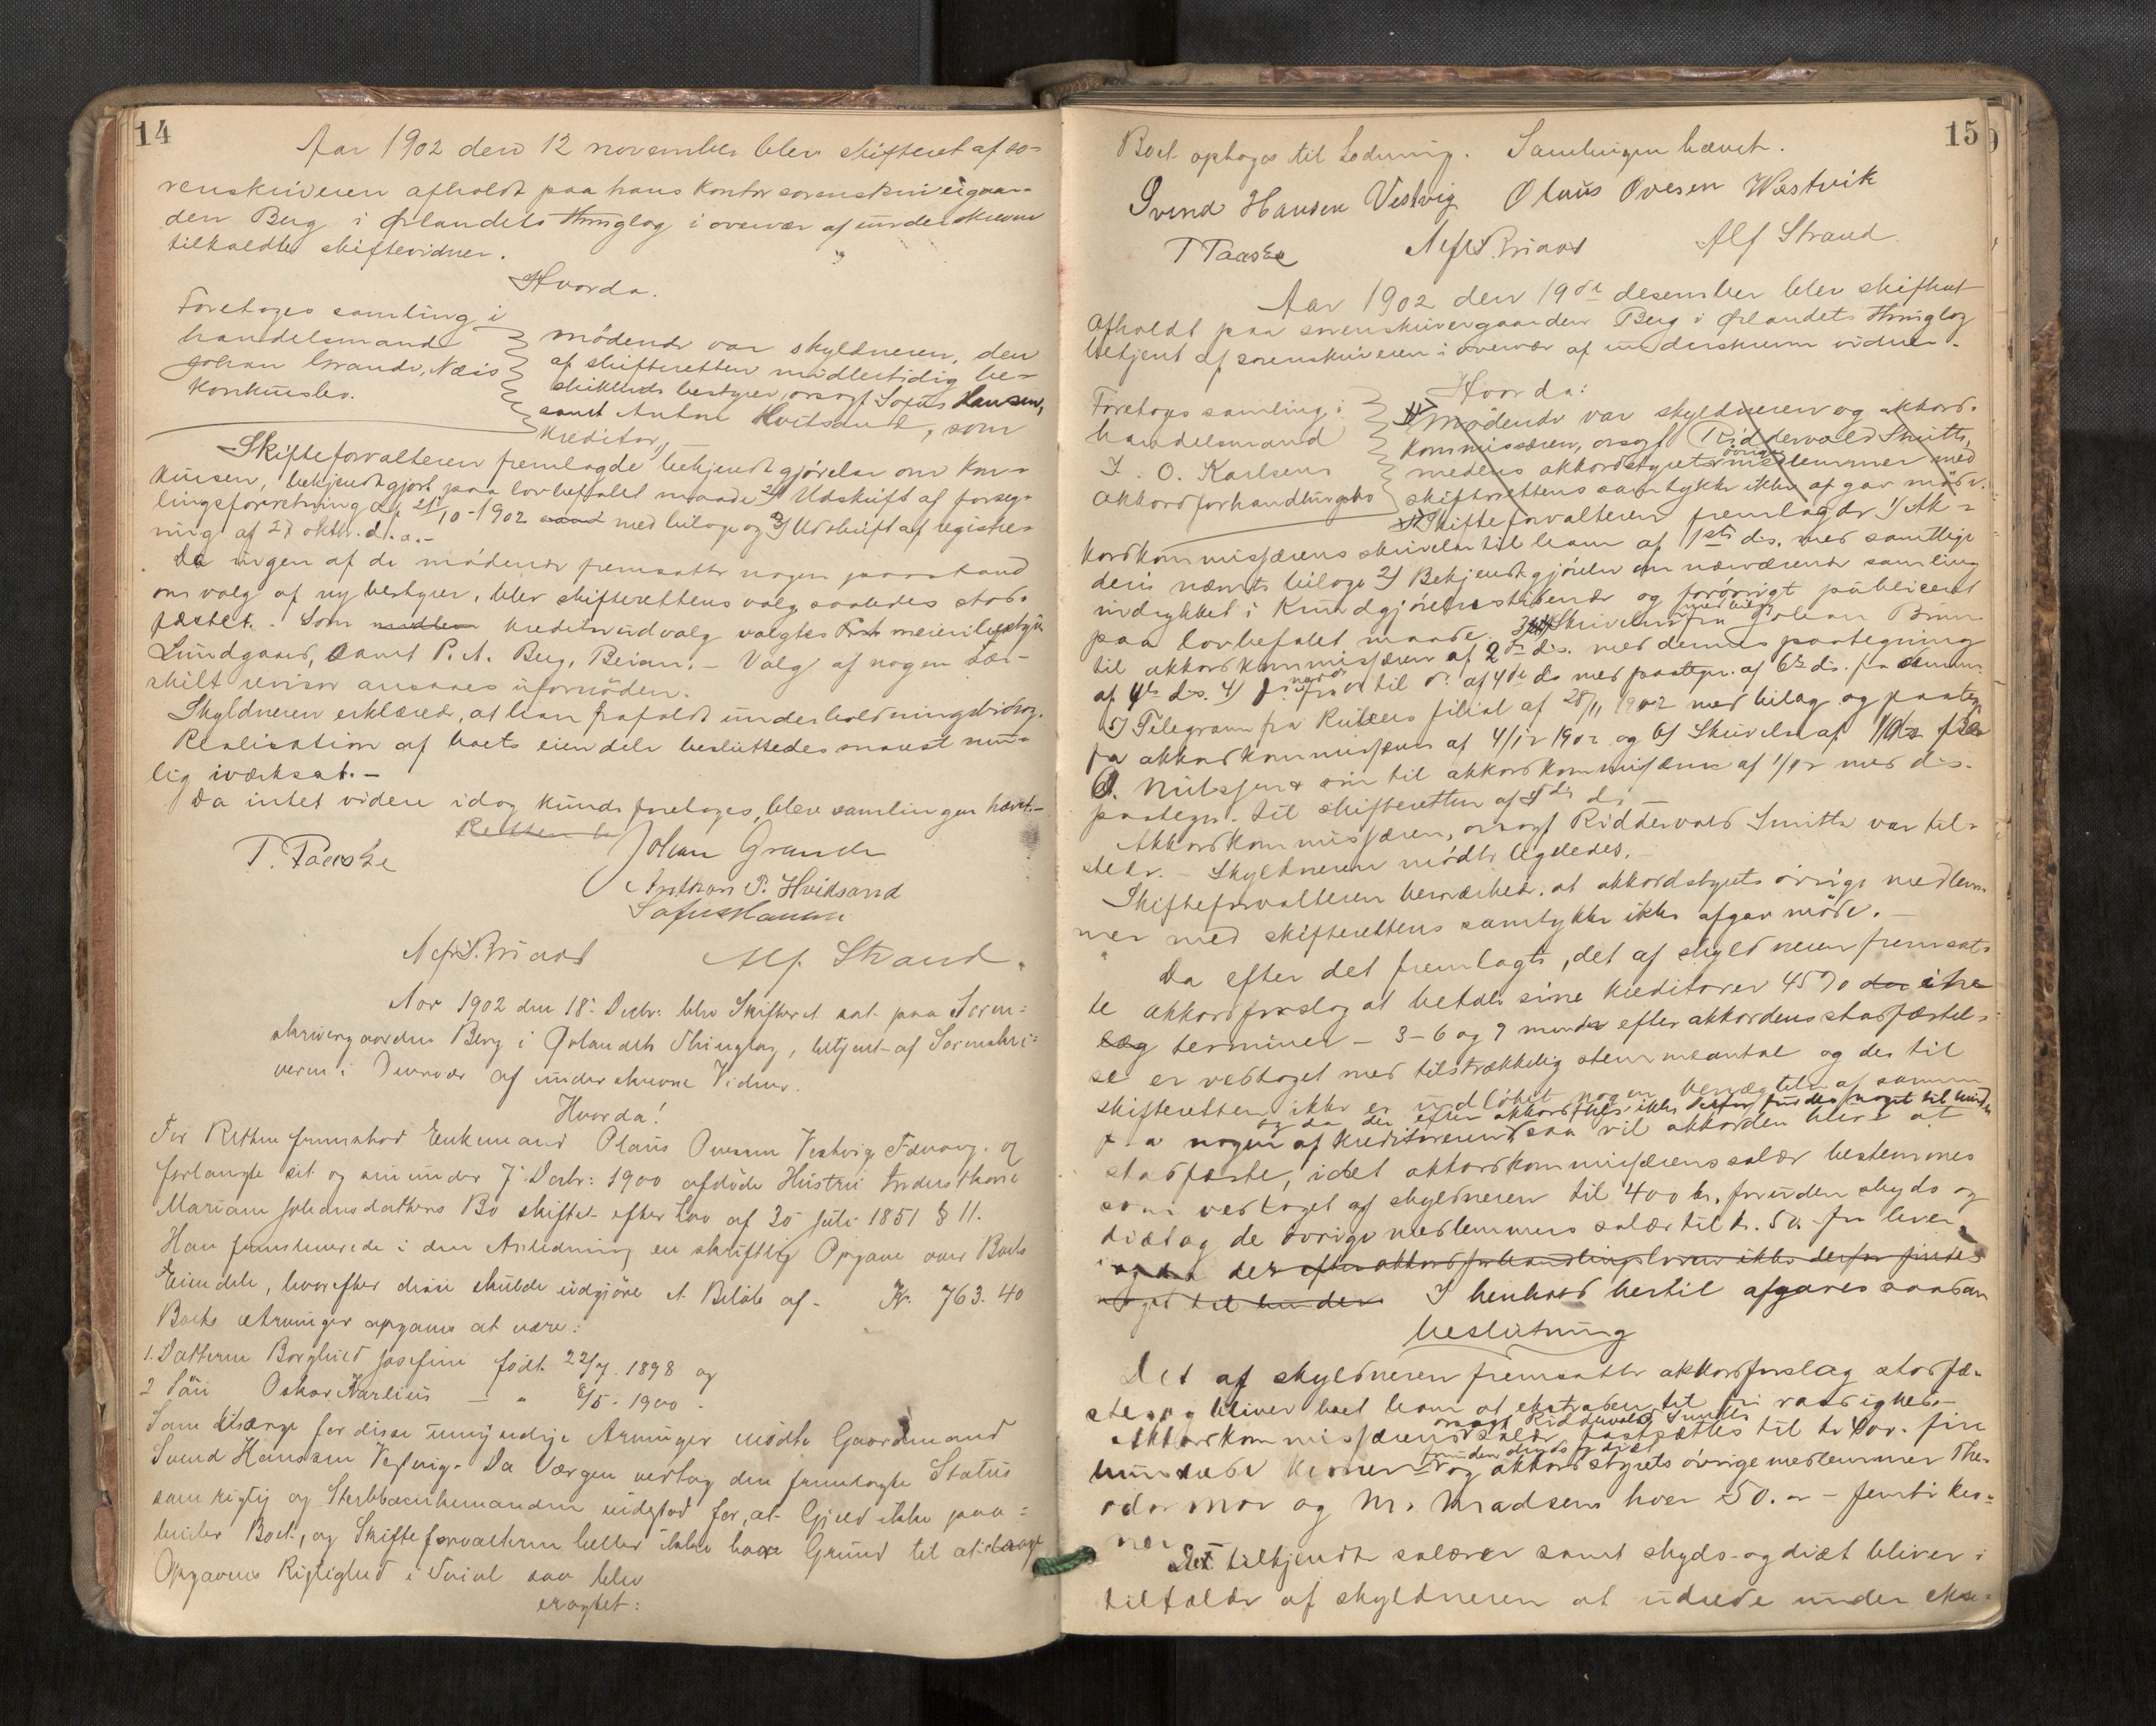 14
Aar 1902 den 12 november blev skifteret af so-
renskriveren afholdt paa hans kontor sorenskrivergaar-
den Berg i Ørlandets thinglag i overvær af underskrevne
tilkaldte skiftevidner.
Hvorda.
Foretoges samling i
handelsmand
Johan Grande, Næs
konkursbo.
mødende var skyldneren, den
af skifteretten midlertidig be-
skikkede bestyrer, orsagf Sofus Hansen,
samt Anton Hvitsand, som
kreditor,
Skifteforvalteren fremlagde 1) bekjendtgjørelse om kon-
kursen, bekjendtgjort paa lovbefalet maade 2) Udskrift af forseg-
lingsforretning af 21/10-1902 med bilage og 3) Udskrift af registre-
ring af 27 oktbr. d. a.-
Da ingen af de mødende fremsatte nogen paastand
om valg af ny bestyrer, blev skifterettens valg saaledes stad-
fæstet. Som kreditorudvalg valgtes meieribestyrer
Lundgaard, samt P. A. Berg, Beian. - Valg af nogen sær-
skilt revisor ansaaes ufornøden.
Skyldneren erklæred, at han frafaldt underholdningsbidrag.
Realisation af boets eiendele besluttedes snarest mu-
lig iværksat. -
Da intet videre idag kunde foretages, blev samlingen hævet.-
Retten be
T. Taaske
Johan Grande
Anthon P. Hvidsand
Sofus Hansen
Alf. Strand.
Aar 1902 den 18. Decbr. blev Skifteret sat paa Soren-
skrivergaarden Berg i Ørlandets Thinglag, betjent af Sorenskri-
veren i Overvær af underskrevne Vidner.
Hvorda!
For Retten fremstod Enkemand Olaus Ovesen Vestvig Fævaag. og
forlangte sit og sin under 7. Decbr: 1900 afdøde Hustru Andersthine
Mariam Johansdatters Bo skiftet efter Lov af 30 Juli 1851 § 11.
Han fremleverede i den Anledning en skriftlig Opgave over Boets
Eiendele, hvorefter disse skulde udgjøre et Beløb af - Kr. 763.40
Boets Arvinger opgaves at være:
1. Datteren Borghild Josefine født 22/7. 1898 og
2 Søn Oskar Karlius - " 8/5. 1900.
Som tilsynsværge for disse umyndige Arvinger mødte Gaardmand
Svend Hanssen Vestvig. Da Værgen vedtog den fremlagte Status
som rigtig og Sterbboenkemanden indestod for, at Gjeld ikke paa-
hviler Boet, og Skifteforvalteren heller ikke havde Grund til at drage
Opgavens Rigtighed i Tvivl saa blev
eragtet:
15
Boet optoges til Lodning. Samlingen hævet.
Svend Hansen Vestvig Olaus Ovesen Wæstvik
T Taaske
Alf Strand.
Aar 1902 den 19de desember blev skifteret
afholdt paa sorenskrivergaarden Berg i Ørlandets thinglag
betjent af sorenskriveren i overvær af underskrevne vidner.
Hvorda:
Foretoges samling i
handelsmand
J. O. Karlsens
akkordforhandlingsbo
Mødende var skyldneren og akkord-
kommissæren, orsagf Riddervold Smith,
medens akkordstyrets øvrige medlemmer med
skifterettens samtykke ikke afgav møde.
Skifteforvalteren fremlagde 1) Ak-
kordkommissærens skrivelse til ham af 1ste ds. med samtlige
deri nævnte bilage 2) Bekjendtgjørelse om nærværende samling
indrykket i Kundgjørelsestidende og forøvrigt publiceret
paa lovbefalet maade. 3) Skrivelse med bilag fra Johan Bruun
til akkordkommissæren af 2de ds. med dennes paategning
af 4de ds. 4) til af 4de ds med paategn. af 6te ds. fra denne.
5) Telegram fra filial af 28/11 1902 med bilag og paateg
fra akkordkommissæren af 4/12 1902 og 6) Skrivelse af fra
Nilssen & søn til akkordkommissæren af 1/12 med ds.
paategn. til skifteretten af ds. -
Akkordkommissæren, orsagf Riddervold Smith var til-
stede. - Skyldneren mødte ligeledes. -
Skifteforvalteren bemærkede, at akkordstyrets øvrige medlem-
mer med skifterettens samtykke ikke afgav møde. -
Da efter det fremlagte, det af skyldneren fremsat-
te akkordforslag at betale sine kreditorer 45 % i tre
terminer - 3-6 og 9 mndr efter akkordens stadfæstel-
se er vedtaget med tilstrækkelig stemmeantal og der til
skifteretten ikke er indløbet nogen benægtelse af samme
fra nogen af kreditorerne og da der efter akkordfhls. ikke derfor findes noget til hinder saa vil akkorden blive at
stadfæste, idet akkordkommissærens salær bestemmes
som vedtaget af skyldneren til 400 kr. foruden skyds og
diæt og de øvrige medlemmers salær til kr. 50. for hver.
og da der efter akkordforhandlingsloven ikke derfor findes
noget til hinder. I henhold hertil afgaves saadan
beslutning
Det af skyldneren fremsatte akkordforslag stadfæ-
stes og bliver boet ham at ekstradere til fri raadighed.-
Akkordkommissærens orsagf Riddervold Smiths salær fastsættes til kr 400. fire
hundrede kroner foruden skyds og diæt og akkordstyrets øvrige medlemmer The-
odor Moe og M. Madsens hver 50. - femti kro-
ner
De tilkjendte salærer samt skyds- og diæt bliver i
tilfælde af skyldneren at udrede under ekse-